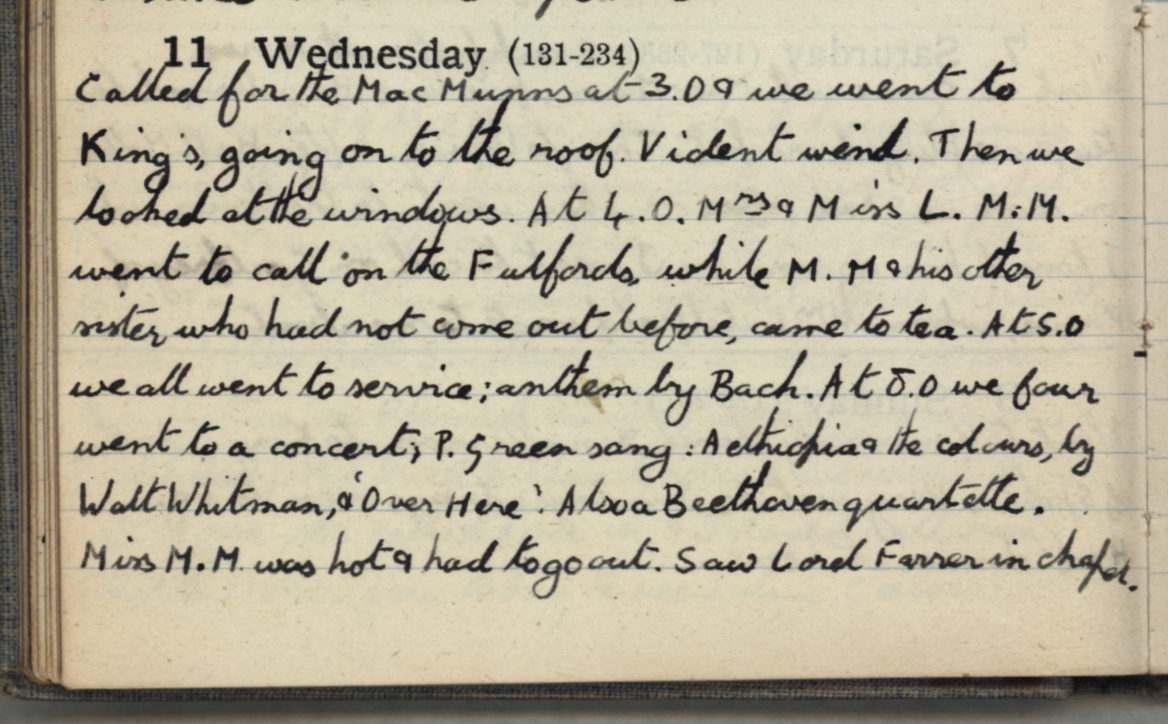 11 Wednesday (131-234)
Called for the Mac Munns at 3.0 & we went to
King's, going on to the roof. Violent wind. Then we
looked at the windows. At 4.0. Mrs & Miss L. M.M.
went to call on the Fulfords, while M. M & his other
sister, who had not come out before, came to tea. At 5.0
we all went to service; anthem by Bach. At 8.0 we four
went to a concert; P. Green sang: Aethiopia & the colours, by
Walt Whitman, & 'Over Here'. Also a Beethoven quartette.
Miss M.M. was hot & had to go out. Saw Lord Farrer in chapel.